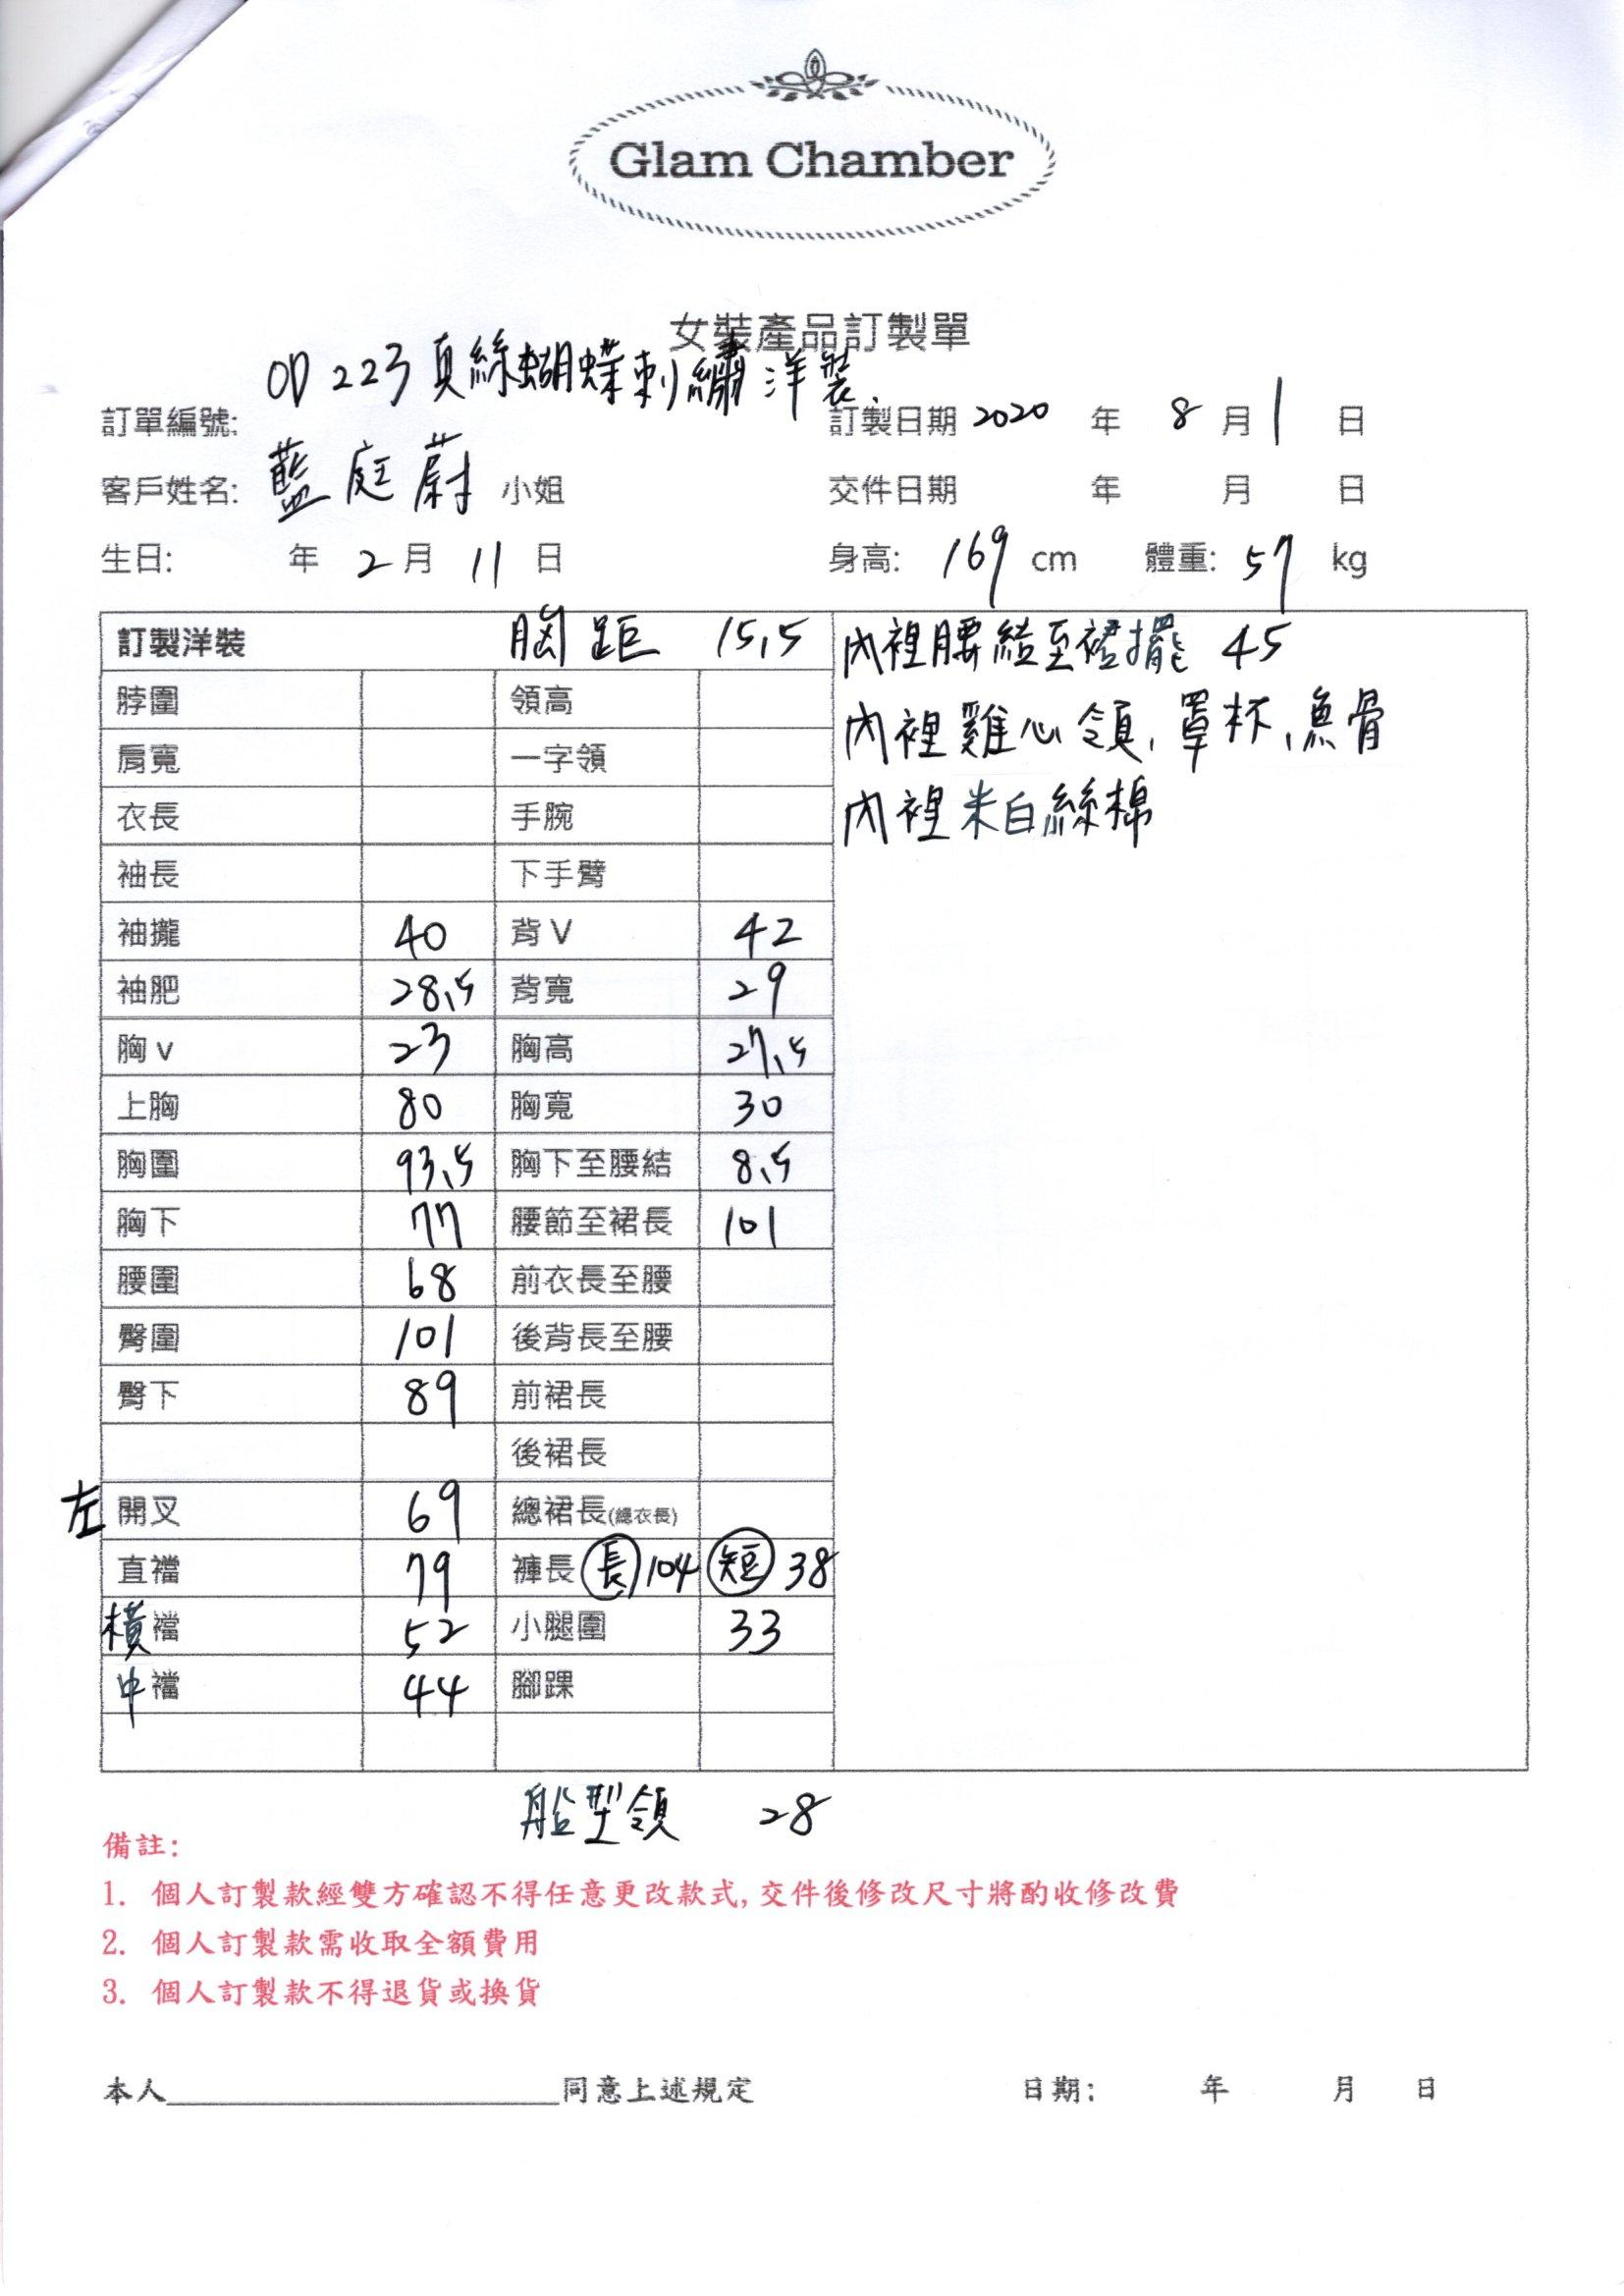 Glam Chamber
女裝產品訂製單
訂單編號: OD 223 真絲蝴蝶刺繡洋裝. 訂製日期 2020 年 8 月 1 日
客戶姓名: 藍庭蔚 小姐 交件日期 年 月 日
生日: 年 2 月 11 日 身高: 169 cm 體重: 57 kg
訂製洋裝 胸距 15.5
脖圍 領高
肩寬 一字領
衣長 手腕
袖長 下手臂
袖攏 40 背 V 42
袖肥 28.5 背寬 29
胸 v 23 胸高 27.5
上胸 80 胸寬 30
胸圍 93.5 胸下至腰結 8.5
胸下 77 腰節至裙長 101
腰圍 68 前衣長至腰
臀圍 101 後背長至腰
臀下 89 前裙長
後裙長
左 開叉 69 總裙長(總衣長)
直襠 79 褲長 長 104 短 38
橫襠 52 小腿圍 33
中襠 44 腳踝
內裡腰結至裙擺 45
內裡雞心領、罩杯、魚骨
內裡米白絲棉
船型領 28
備註:
1. 個人訂製款經雙方確認不得任意更改款式,交件後修改尺寸將酌收修改費
2. 個人訂製款需收取全額費用
3. 個人訂製款不得退貨或換貨
本人____________________同意上述規定 日期: 年 月 日